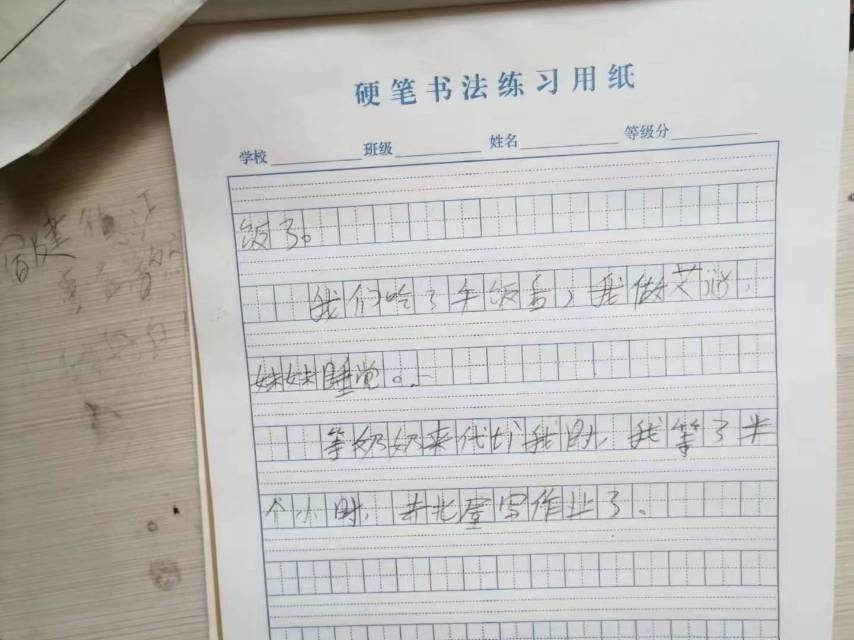 硬笔书法练习用纸
学校 班级 姓名 等级分
饭了。
我们吃了午饭后,我做艾灸,
妹妹睡觉。
等奶奶来代切我时,我等了半
个小时,去北屋写作业了、
建